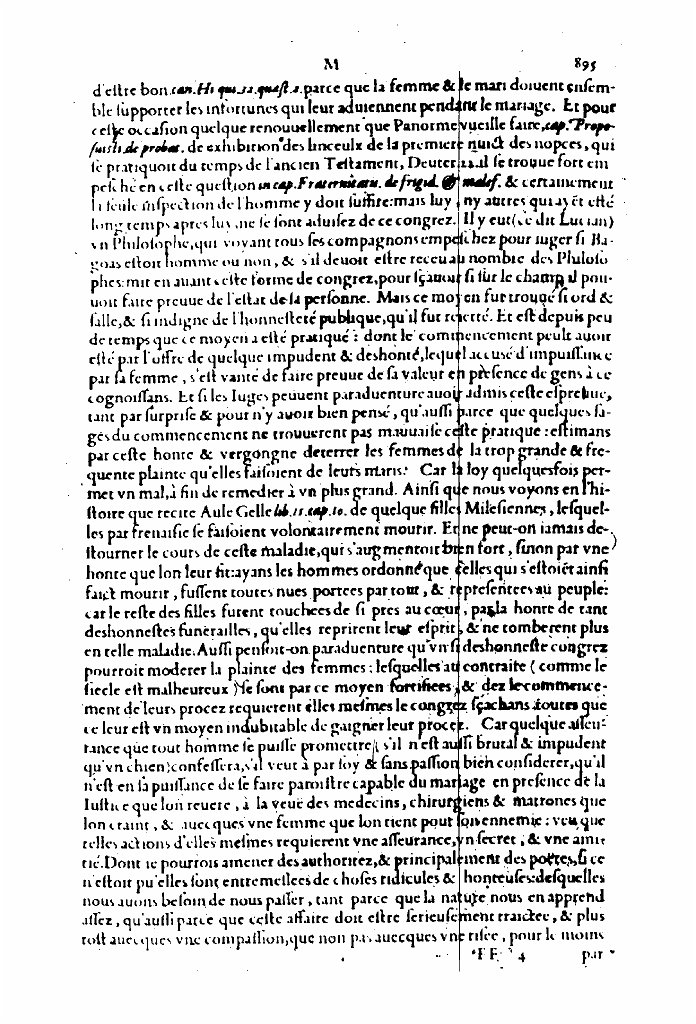 M 895
d'eſtre bon.can. Hi qui. 32. quæſt. 2. parce que la femme & le mari doiuent enſem-
ble ſupporter les infortunes qui leur aduiennent pendant le mariage. Et pour
ceſte occaſion quelque renouuellement que Panorme vueille faire, cap. Propo-
ſuiſti. de probat. de exhibition des linceulx de la premiere nuict des nopces, qui
ſe pratiquoit du temps de l'ancien Teſtament, Deuter. 22. il ſe trouue fort em
peſché en ceſte queſtion in cap. Fraternitatis. de frigid. & malef. & certainement
la ſeule inſpection de l'homme y doit ſuffire: mais luy, ny autres qui ayēt eſté
long temps apres luy, ne ſe ſont aduiſez de ce congrez. Il y eut (ce dit Lucian)
vn Philoſophe, qui voyant tous ſes compagnons empeſchez pour iuger ſi Ba-
goas eſtoit homme ou non, & s'il deuoit eſtre receu au nombre des Philoſo
phes: mit en auant ceſte forme de congrez, pour ſçauoir ſi ſur le champ il pou-
uoit faire preuue de l'eſtat de ſa perſonne. Mais ce moyen fut trouué ſi ord &
ſalle, & ſi indigne de l'honneſteté publique, qu'il fut reietté. Et eſt depuis peu
de temps que ce moyen a eſté pratiqué: dont le commencement peult auoir
eſté par l'offre de quelque impudent & deshonté, lequel accusé d'impuiſſance
par ſa femme, s'eſt vanté de faire preuue de ſa valeur en preſence de gens à ce
cognoiſſans. Et ſi les Iuges peuuent parauenture auoir admis ceſte eſpreuue,
tant par ſurpriſe & pour n'y auoir bien penſé, qu'auſſi parce que quelques ſa-
ges du commencement ne trouuerent pas mauuaiſe ceſte pratique: eſtimans
par ceſte honte & vergongne deterrer les femmes de la trop grande & fre-
quente plainte qu'elles faiſoient de leurs maris. Car la loy quelquesfois per-
met vn mal, à fin de remedier à vn plus grand. Ainſi que nous voyons en l'hi-
ſtoire que recite Aule Gelle lib. 15. cap. 10. de quelque filles Mileſiennes, leſquel-
les par frenaiſie ſe faiſoient volontairement mourir. Et ne peut-on iamais de-
ſtourner le cours de ceſte maladie, qui s'augmentoit bien fort, ſinon par vne
honte que lon leur fit: ayans les hommes ordonné que celles qui s'eſtoiēt ainſi
faict mourir, fuſſent toutes nues portees par tout, & repreſentees au peuple:
car le reſte des filles furent touchees de ſi pres au cœur, par la honte de tant
deshonneſtes funerailles, qu'elles reprirent leur eſprit, & ne tomberent plus
en telle maladie. Auſſi penſoit-on paraduenture qu'vn ſi deshonneſte congrez
pourroit moderer la plainte des femmes: leſquelles au contraite (comme le
ſiecle eſt malheureux) ſe ſont par ce moyen fortifiees, & dez le commence-
ment de leurs procez requierent elles meſmes le congrez ſçachans toutes que
ce leur eſt vn moyen indubitable de gaigner leur procez. Car quelque aſſeu-
rance que tout homme ſe puiſſe promettre, (s'il n'eſt auſſi brutal & impudent
qu'vn chien) confeſſera, s'il veut à par ſoy & ſans paſſion bien conſiderer, qu'il
n'eſt en ſa puiſſance de ſe faire paroiſtre capable du mariage en preſence de la
Iuſtice que lon reuere, à la veuë des medecins, chirurgiens & matrones que
lon craint, & auecques vne femme que lon tient pour ſon ennemie: veu que
telles actions d'elles meſmes requierent vne aſſeurance, vn ſecret, & vne ami-
tié. Dont ie pourrois amener des authoritez, & principalement des poëtes, ſi ce
n'eſtoit qu'elles ſont entremeſlees de choſes ridicules & honteuſes: deſquelles
nous auons beſoin de nous paſſer, tant parce que la nature nous en apprend
aſſez, qu'auſſi parce que ceſte affaire doit eſtre ſerieuſement traictee, & plus
toſt auecques vne compaſſion, que non pas auecques vne riſee, pour le moins
FF 4 par